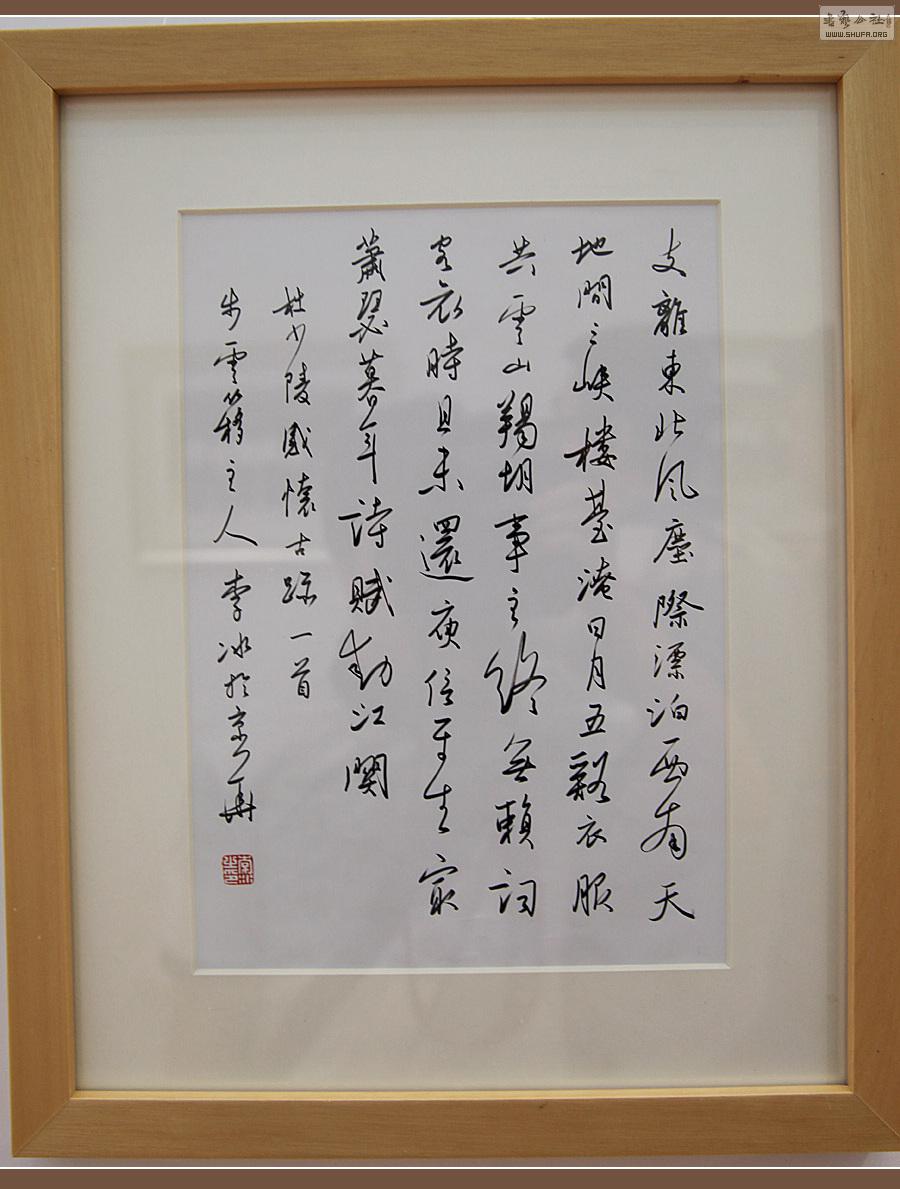 支離東北風塵際漂泊西南天
地間三峽樓臺淹日月五谿衣服
共雲山羯胡事主終無賴詞
客哀時且未還庾信平生最
蕭瑟暮年詩賦動江關
杜少陵感懷古跡一首
步雲簃主人 李冰於京華
WWW.SHUFA.ORG